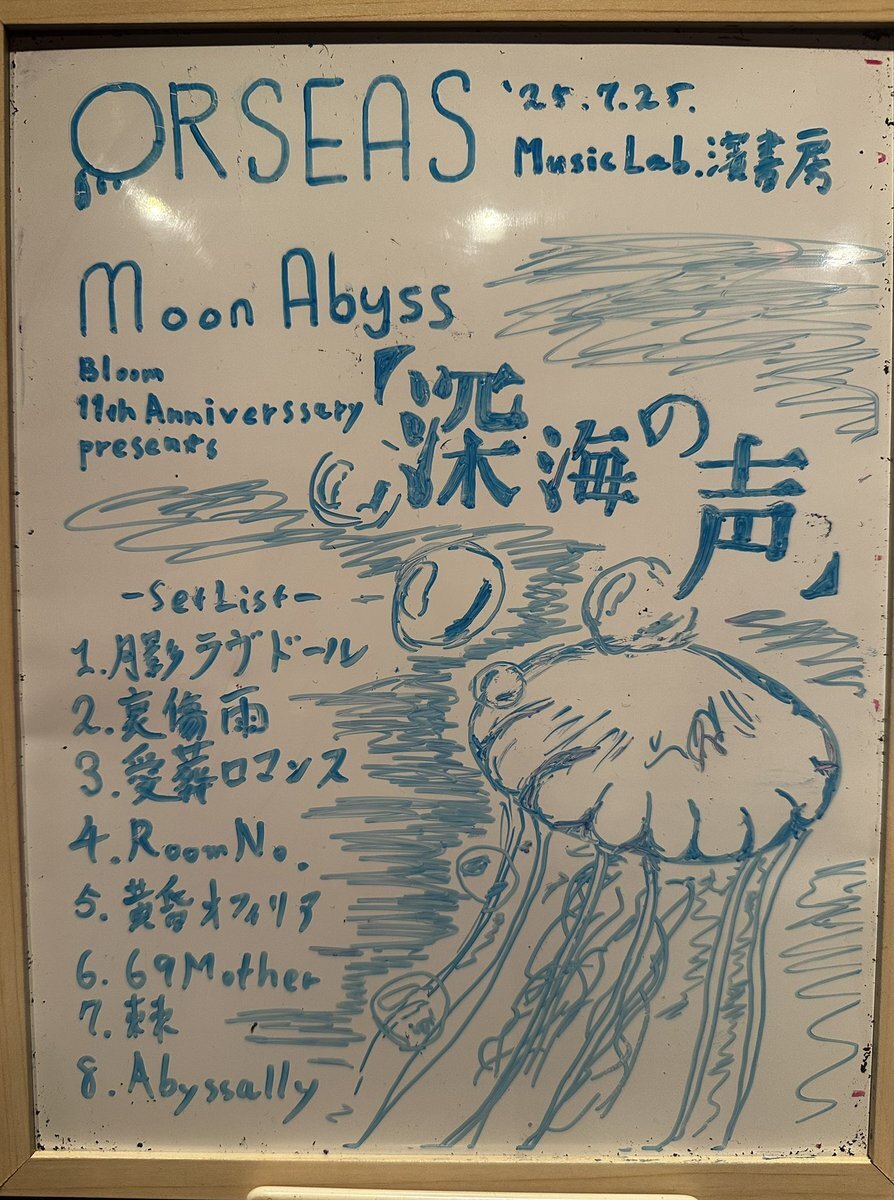 ORSEAS
'25.7.25.
MusicLab.濱書房
Moon Abyss
Bloom
11th Anniverssary
presents
『深海の声』
-SetList-
1.月影ラヴドール
2.哀傷雨
3.愛葬ロマンス
4.RoomNo.
5.黄昏オフィリア
6.69Mother
7.棘
8.Abyssally